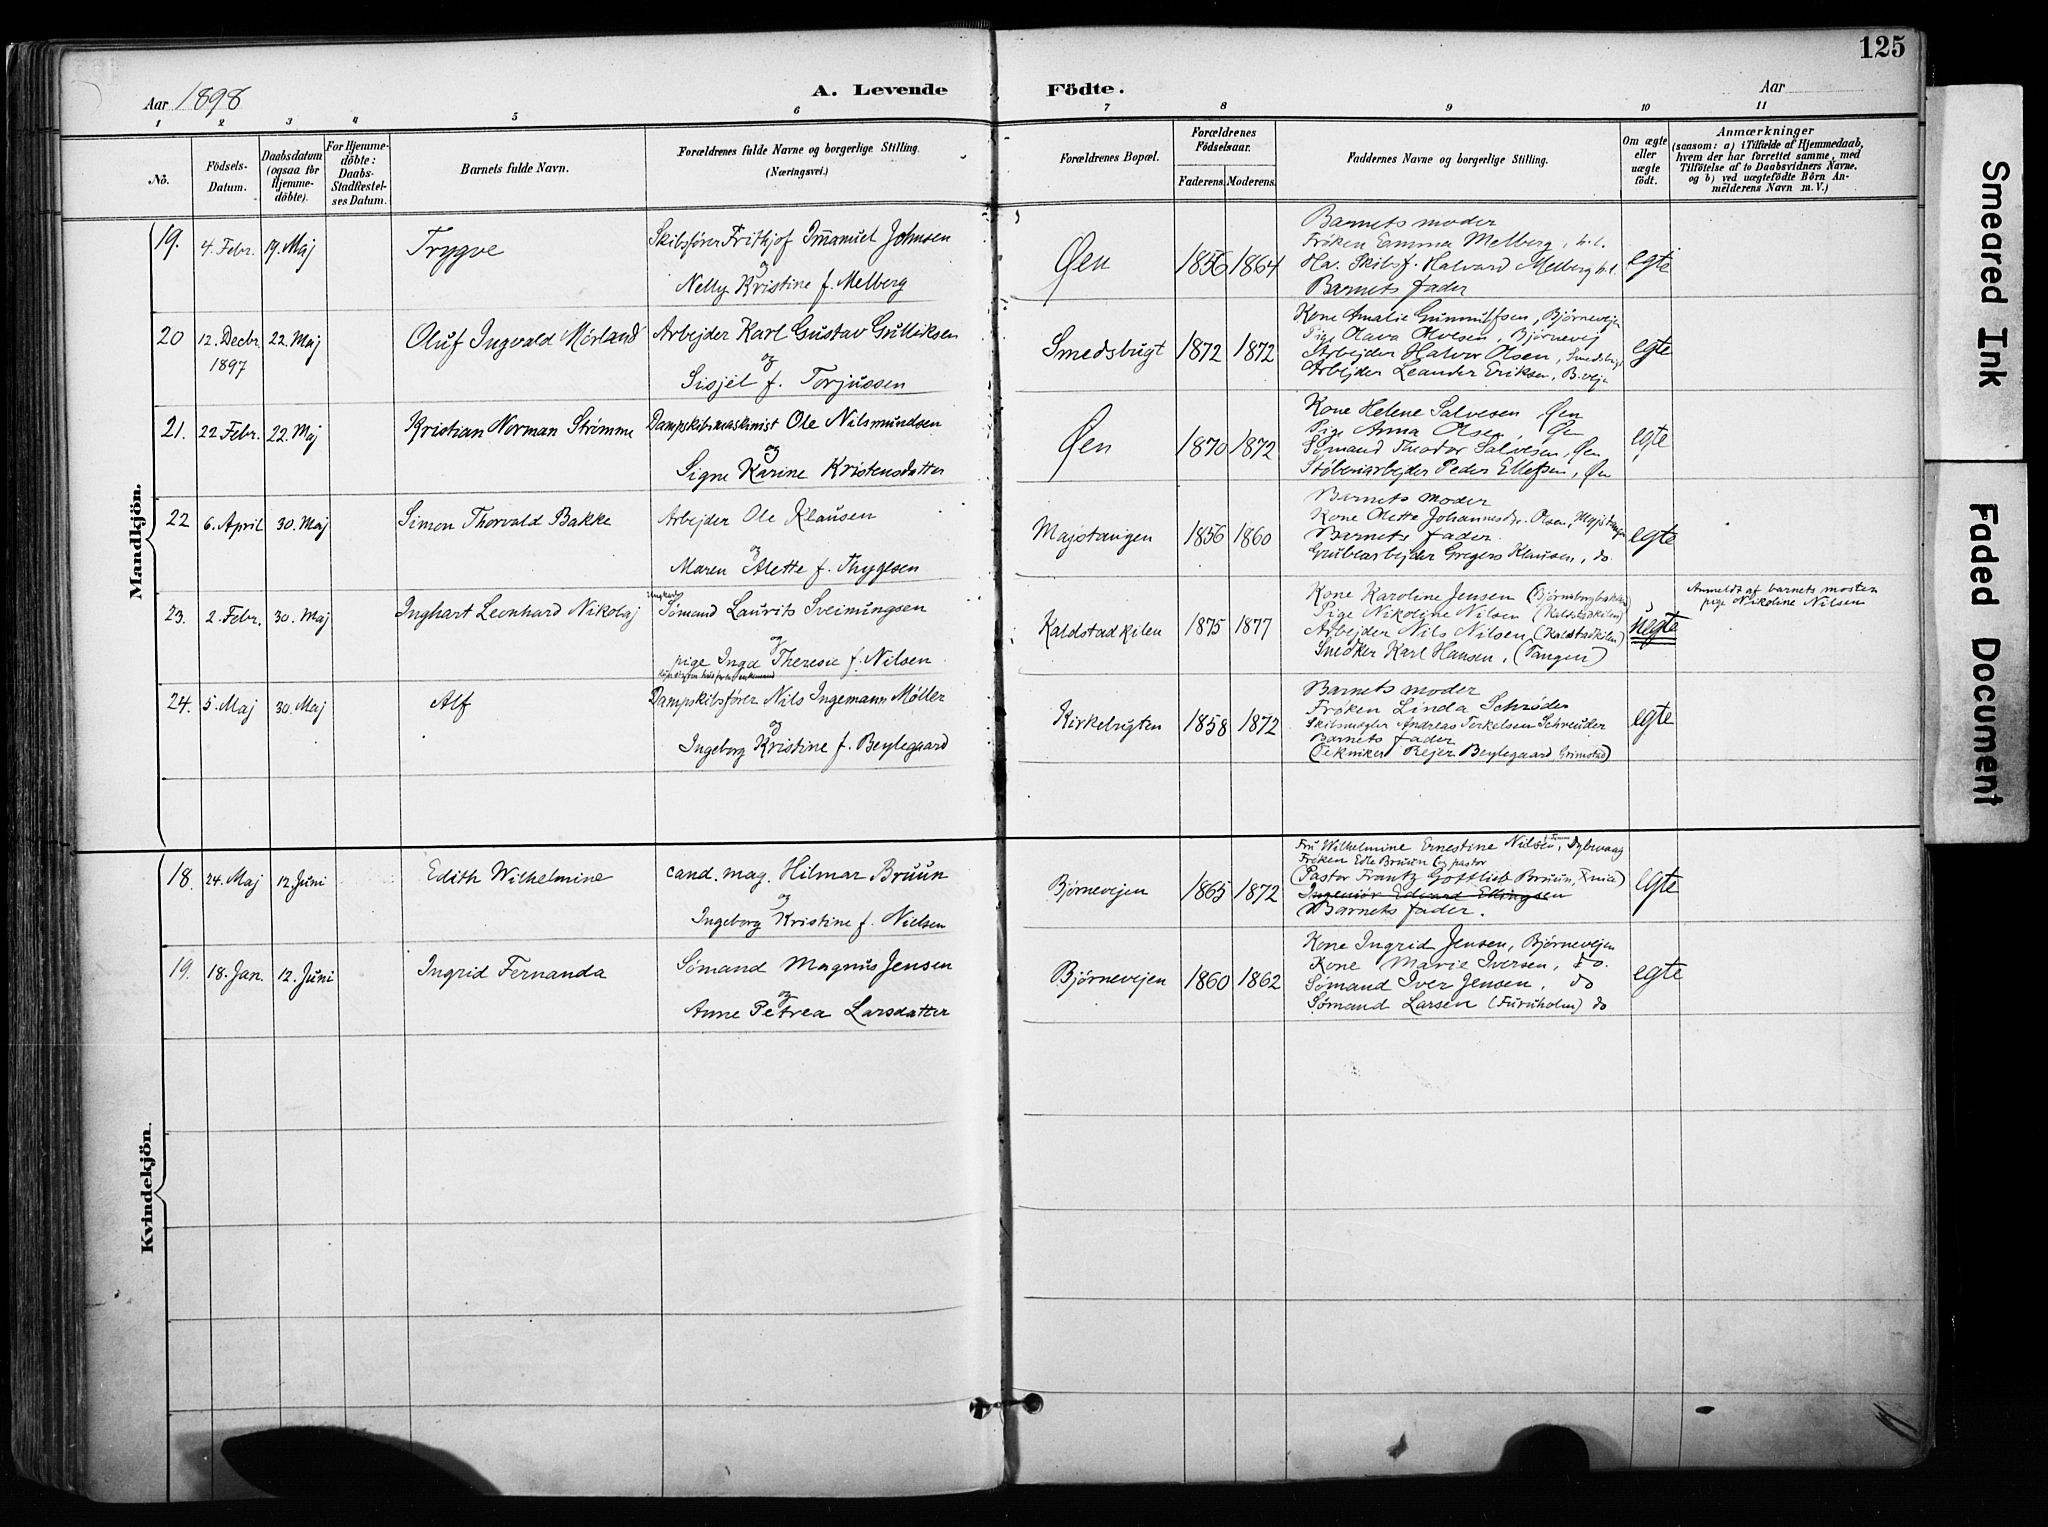 125
Aar 1898
A. Levende Födte.
Aar
1 2 3 4 5 6 7 8 9 10 11
No.
Födsels-Datum.
Daabsdatum (ogsaa for Hjemme-döbte).
For Hjemme-döbte: Daabs-Stadfæstel-ses Datum.
Barnets fulde Navn.
Forældrenes fulde Navne og borgerlige Stilling.
(Næringsvei.)
Forældrenes Bopæl.
Forældrenes Födselsaar.
Faderens. Moderens.
Faddernes Navne og borgerlige Stilling.
Om ægte eller uægte födt.
Anmærkninger
(saasom: a) i Tilfælde af Hjemmedaab,
hvem der har forrettet samme, med
Tilföielse af to Daabsvidners Navne,
og b) ved uægtefödte Börn An-
melderens Navn m. V.)
Mandkjön.
19. 4. Febr. 19. Maj Trygve
Skibsfører Frithjof Imanuel Johnsen
og
Nelly Kristine f. Melberg
Øen 1856 1864
Barnets moder
Frøken Emma Melberg, h.t.
Hav. Skibsf. Halvard Melberg h.t.
Barnets fader
egte
20 12. Decbr. 1897 22. Maj Oluf Ingvald Mørland
Arbejder Karl Gustav Gulliksen
og
Sisjel f. Torjussen
Smedsbugt 1872 1872
Kone Amalie Gunnulfsen, Bjørnevejen
Pige Olava Olvesen, Bjørnevej
Arbejder Halvor Olsen, Smedsbugt
Arbejder Leander Eriksen, B.vejn
egte
21. 22 Febr. 22. Maj Kristian Norman Strømme
Dampskibsmaskinist Ole Nilsmundsen
og
Signe Karine Kristensdatter
Øen 1870 1872
Kone Helene Salvesen, Øen
Pige Anna Olsen, Øen
Sømand Theodor Salvesen, Øen
Støberiarbejder Peder Ellefsen, Øen
egte
22 6. April 30. Maj Simon Thorvald Bakke
Arbejder Ole Klausen
og
Maren Alette f. Thygesen
Majstangen 1856 1860
Barnets moder
Kone Olette Johannesdr. Olsen, Majstangen
Barnets fader.
Grubearbejder Gregers Klausen, do.
egte
23. 2. Febr. 30. Maj Inghart Leonhard Nikolaj
Ungkarl
Sømand Laurits Sveinungsen
og
pige Inga Theresie f. Nilsen
Kaldstadkilen 1875 1877
Kone Karoline Jensen (Bjørnsborgbakken)
Pige Nikoline Nilsen (Kaldstadkilen)
Arbejder Nils Nilsen (Kaldstadkilen)
Snedker Karl Hansen, (Tangen)
uegte
Anmeldt af barnets moster
pige Nikoline Nilsen
24. 5. Maj 30. Maj Alf
Dampskibsfører Nils Ingemann Møller
og
Ingeborg Kristine f. Beylegaard
Kirkebugten 1858 1872
Barnets moder
Frøken Linda Schrøder
Skibsmægler Andreas Terkelsen Schreuder
Barnets fader
(Tekniker Rejer Beylegaard, Grimstad)
egte
Kvindekjön.
18. 24. Maj 12. Juni Edith Wilhelmine
cand. mag. Hilmar Bruun
og
Ingeborg Kristine f. Nielsen
Bjørnevejen 1865 1872
Fru Wilhelmine Ernestine Nilsen, Dybvaag
Frøken Edle Bruun
(Pastor Frantz Gottlieb Bruun,
Ingeniør Edvard Ellingsen
Barnets fader.
egte
19. 18. Jan. 12. Juni Ingrid Fernanda
Sømand Magnus Jensen
og
Anne Petrea Larsdatter
Bjørnevejen 1860 1862
Kone Ingrid Jensen, Bjørnevejen
Kone Marie Iversen, do.
Sømand Iver Jensen, do
Sømand Larsen (Furuholm) do
egte
Smeared Ink
Faded Document